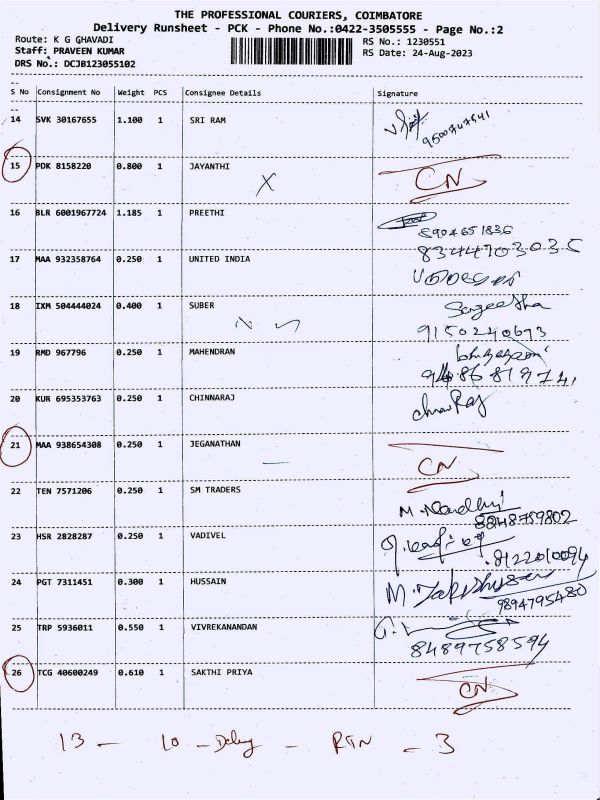 THE PROFESSIONAL COURIERS, COIMBATORE
Delivery Runsheet - PCK - Phone No.:0422-3505555 - Page No.:2
Route: K G GHAVADI
RS No.: 1230551
Staff: PRAVEEN KUMAR
RS Date: 24-Aug-2023
DRS No.: DCJB123055102
--
S No Consignment No Weight PCS Consignee Details Signature
--
14 SVK 30167655 1.100 1 SRI RAM
9500747541
15 PDK 8158220 0.800 1 JAYANTHI X CN
16 BLR 6001967724 1.185 1 PREETHI
8904651836
17 MAA 932358764 0.250 1 UNITED INDIA 8344703035
18 IXM 504444024 0.400 1 SUBER Sangeetha
9150240693
19 RMD 967796 0.250 1 MAHENDRAN
9486819741
20 KUR 695353763 0.250 1 CHINNARAJ chinnaRaj
21 MAA 938654308 0.250 1 JEGANATHAN CN
22 TEN 7571206 0.250 1 SM TRADERS M. Nandhini
8248759802
23 HSR 2828287 0.250 1 VADIVEL
8122010094
24 PGT 7311451 0.300 1 HUSSAIN
9894795480
25 TRP 5936011 0.550 1 VIVREKANANDAN
8489758594
26 TCG 40600249 0.610 1 SAKTHI PRIYA CN
13 - 10 - Delay - RTN - 3